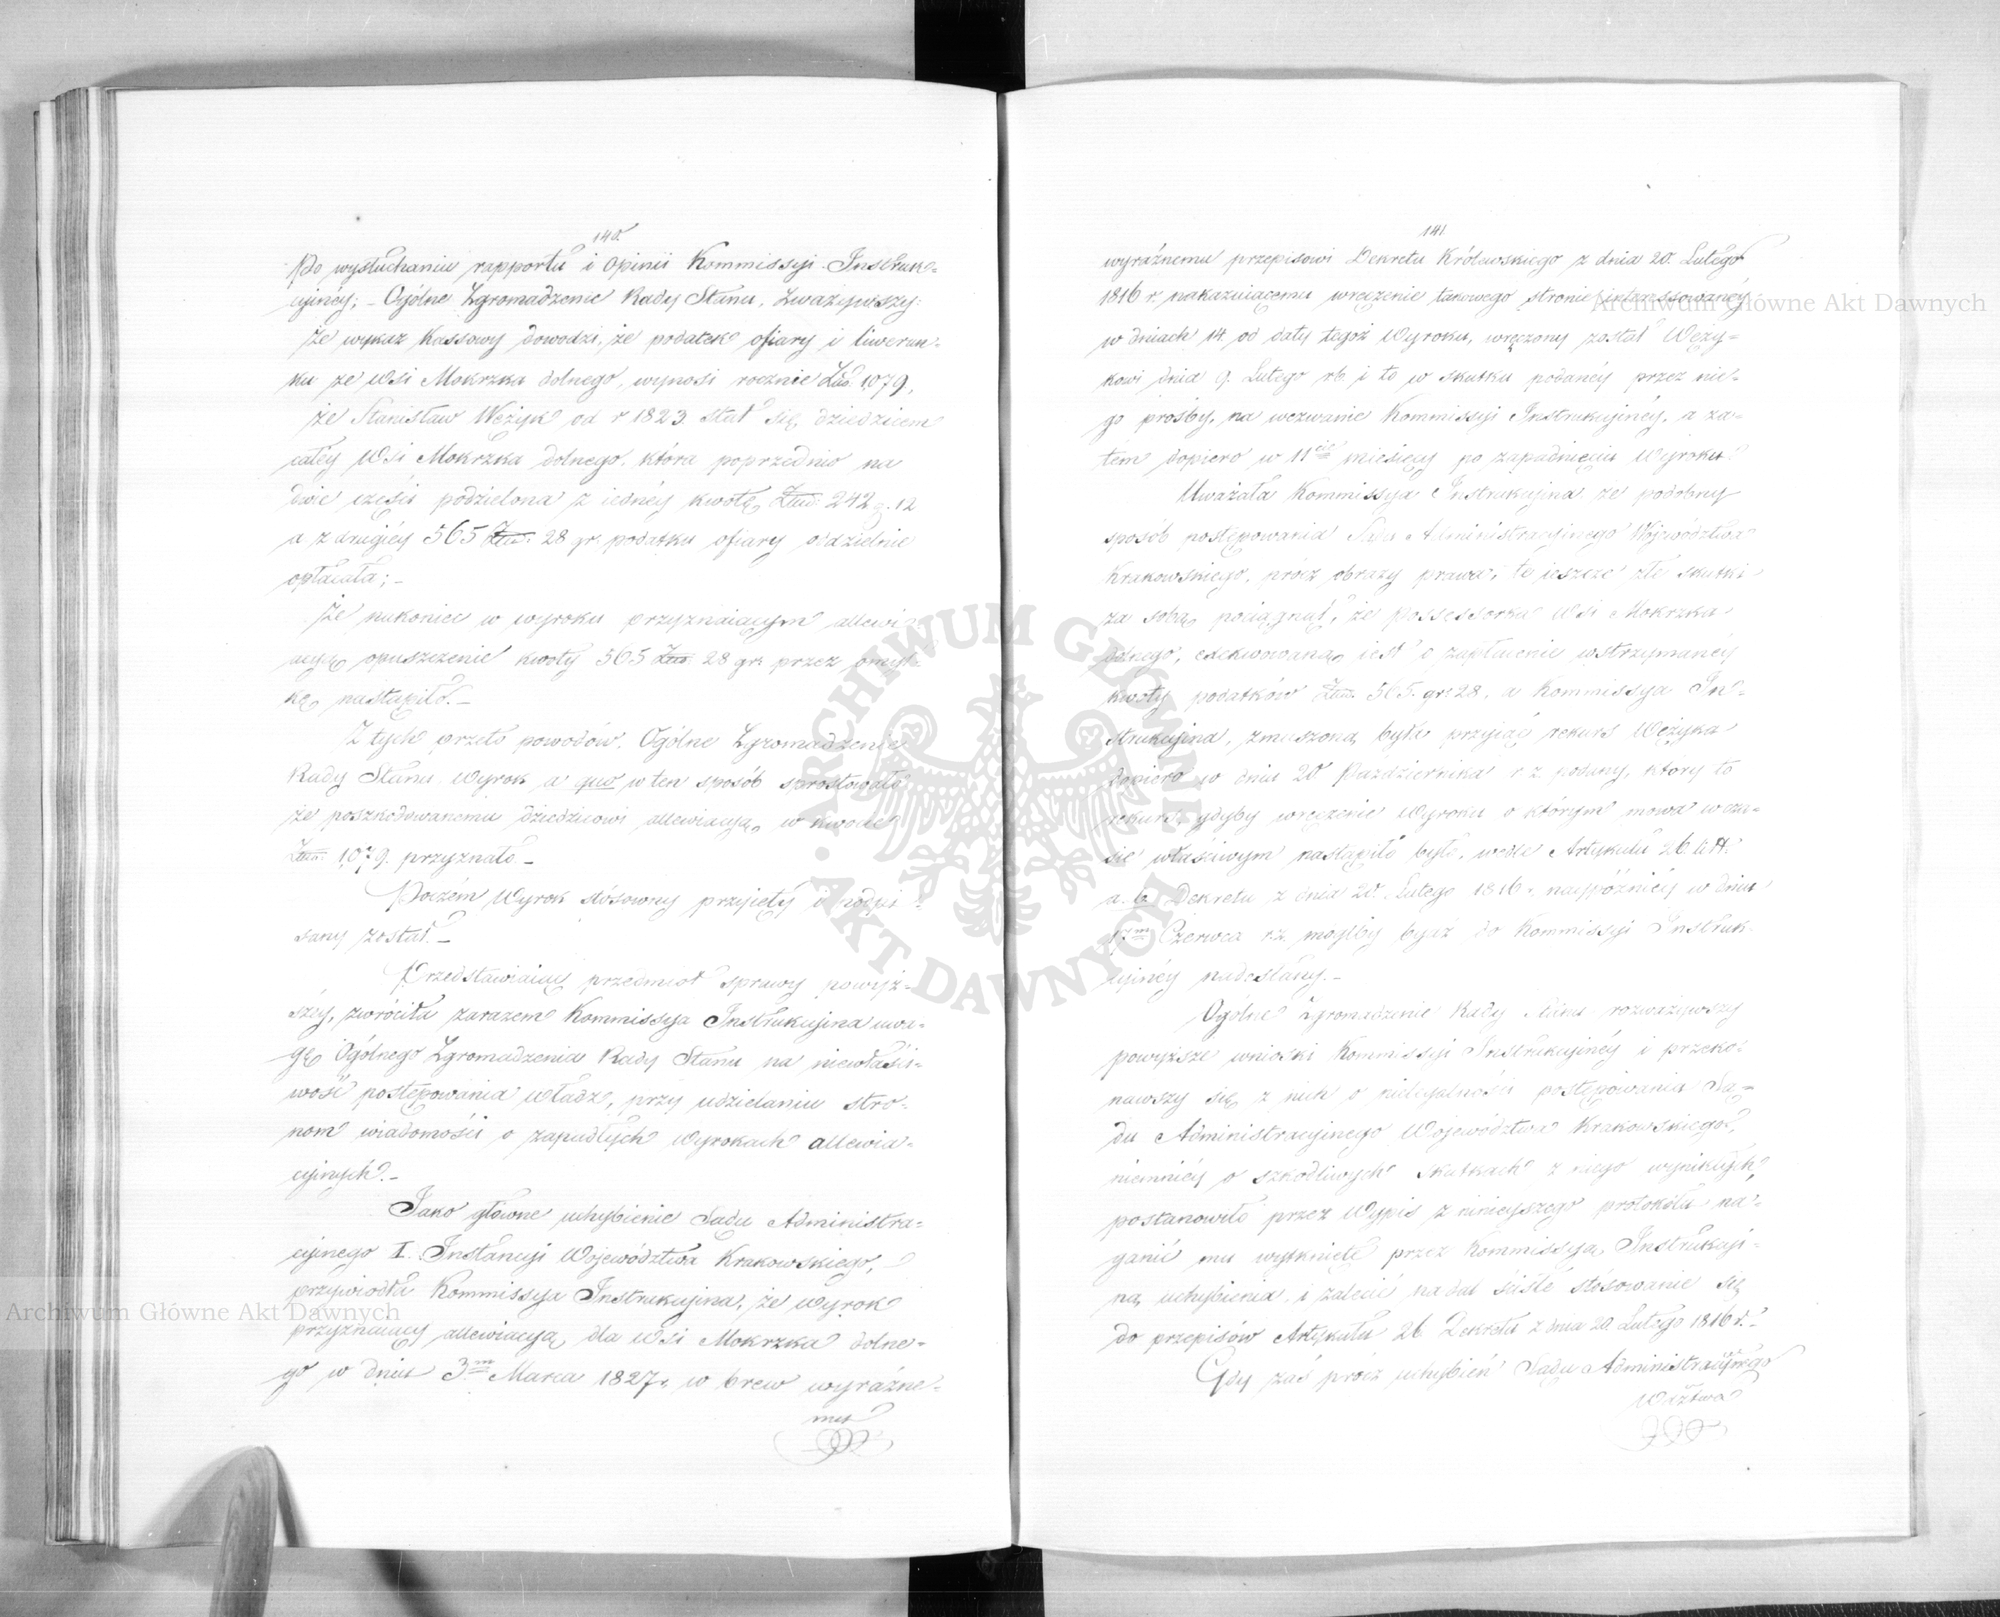 140.
Po wysłuchaniu rapportu i Opinii Kommissyi Instruk-
cyinéy; – Ogólne Zgromadzenie Rady Stanu, Zważywszy:
że wykaz Kassowy dowodzi, że podatek ofiary i liwerun-
ku ze Wsi Mokrzka dolnego, wynosi rocznie 1079,
że Stanisław Wężyk od r 1823 stał się dziedzicem
całéy Wsi Mokrzka dolnego, która poprzednio na
dwie części podzielona z iednéy kwotę 242 g. 12
a z drugiéy 565 28 gr. podatku ofiary oddzielnie
opłacała; –
że nakoniec w wyroku przyznaiącym allewi-
acyę opuszczenie kwoty 565 28 gr. przez omył-
kę nastąpiło. –
Z tych przeto powodów, Ogólne Zgromadzenie
Rady Stanu Wyrok a quo w ten sposób sprostowało
że poszkodowanemu dziedzicowi allewiacyą w kwocie
1079. przyznało –
Poczém Wyrok stósowny przyięty i podpi-
sany został. –
Przedstawiaiąc przedmiot sprawy powyż-
széy, zwróciła zarazem Kommissya Instrukcyina uwa-
gę Ogólnego Zgromadzenia Rady Stanu na niewłaści-
wość postępowania władz, przy udzielaniu stro-
nom wiadomości o zapadłych wyrokach allewia-
cyinych. –
Jako główne uchybienie Sądu Administra-
cyinego I. Instancyi Województwa Krakowskiego,
przywiodła Kommissya Instrukcyina, że wyrok
przyznaiący allewiacyą dla Wsi Mokrzka dolne-
go w dniu 3m Marca 1827 r. w brew wyraźne-
mu
141.
wyraźnemu przepisowi Dekretu Królewskiego z dnia 20. Lutego
1816 r. nakazuiącemu wręczenie takowego stronie interessowanéy
w dniach 14. od daty tegoż Wyroku, wręczony został Węży-
kowi dnia 9. Lutego rb. i to w skutku podanéy przez nie-
go prośby, na wezwanie Kommissyi Instrukcyinéy, a za-
tém dopiero w 11cie miesięcy po zapadnięciu Wyroku
Uważała Kommissya Instrukcyina że podobny
sposób postępowania Sądu Administracyinego Województwa
Krakowskiego, prócz obrazy prawa, te ieszcze złe skutki
za sobą pociągnął, że possessorka Wsi Mokrzka
dolnego, exekwowaną iest o zapłacenie wstrzymanéy
kwoty podatków 565. gr. 28, a Kommissya In-
strukcyina, zmuszoną była przyiąć rekurs Wężyka
dopiero w dniu 20 Października r. z. podany, który to
rekurs, gdyby wręczenie Wyroku o którym mowa w cza-
sie właściwym nastąpiło było, wedle Artykułu 26 litt.
a. b. Dekretu z dnia 20. Lutego 1816 r. naypóźniéy w dniu
17m Czerwca r. z. mógłby bydź do Kommissyi Instruk-
cyinéy nadesłany. –
Ogólne Zgromadzenie Rady Stanu rozważywszy
powyższe wnioski Kommissyi Instrukcyinéy i przeko-
nawszy się z nich o nielegalności postępowania Są-
du Administracyinego Województwa Krakowskiego,
niemniéy o szkodliwych skutkach z niego wynikłych,
postanowiło przez Wypis z ninieyszego protokółu na-
ganić mu wytknięte przez Kommissyą Instrukcyi-
ną uchybienia, i zalecić nadal ścisłe stósowanie się
do przepisów Artykułu 26 Dekretu z dnia 20 Lutego 1816 r. –
Gdy zaś prócz uchybień Sądu Administracyinego
Wdztwa